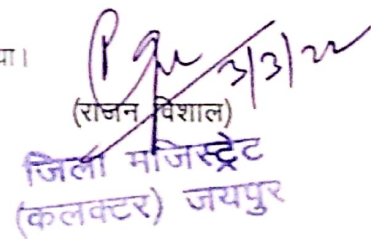 या।
3/3/22
(राजन विशाल)
जिला मजिस्ट्रेट
(कलक्टर) जयपुर